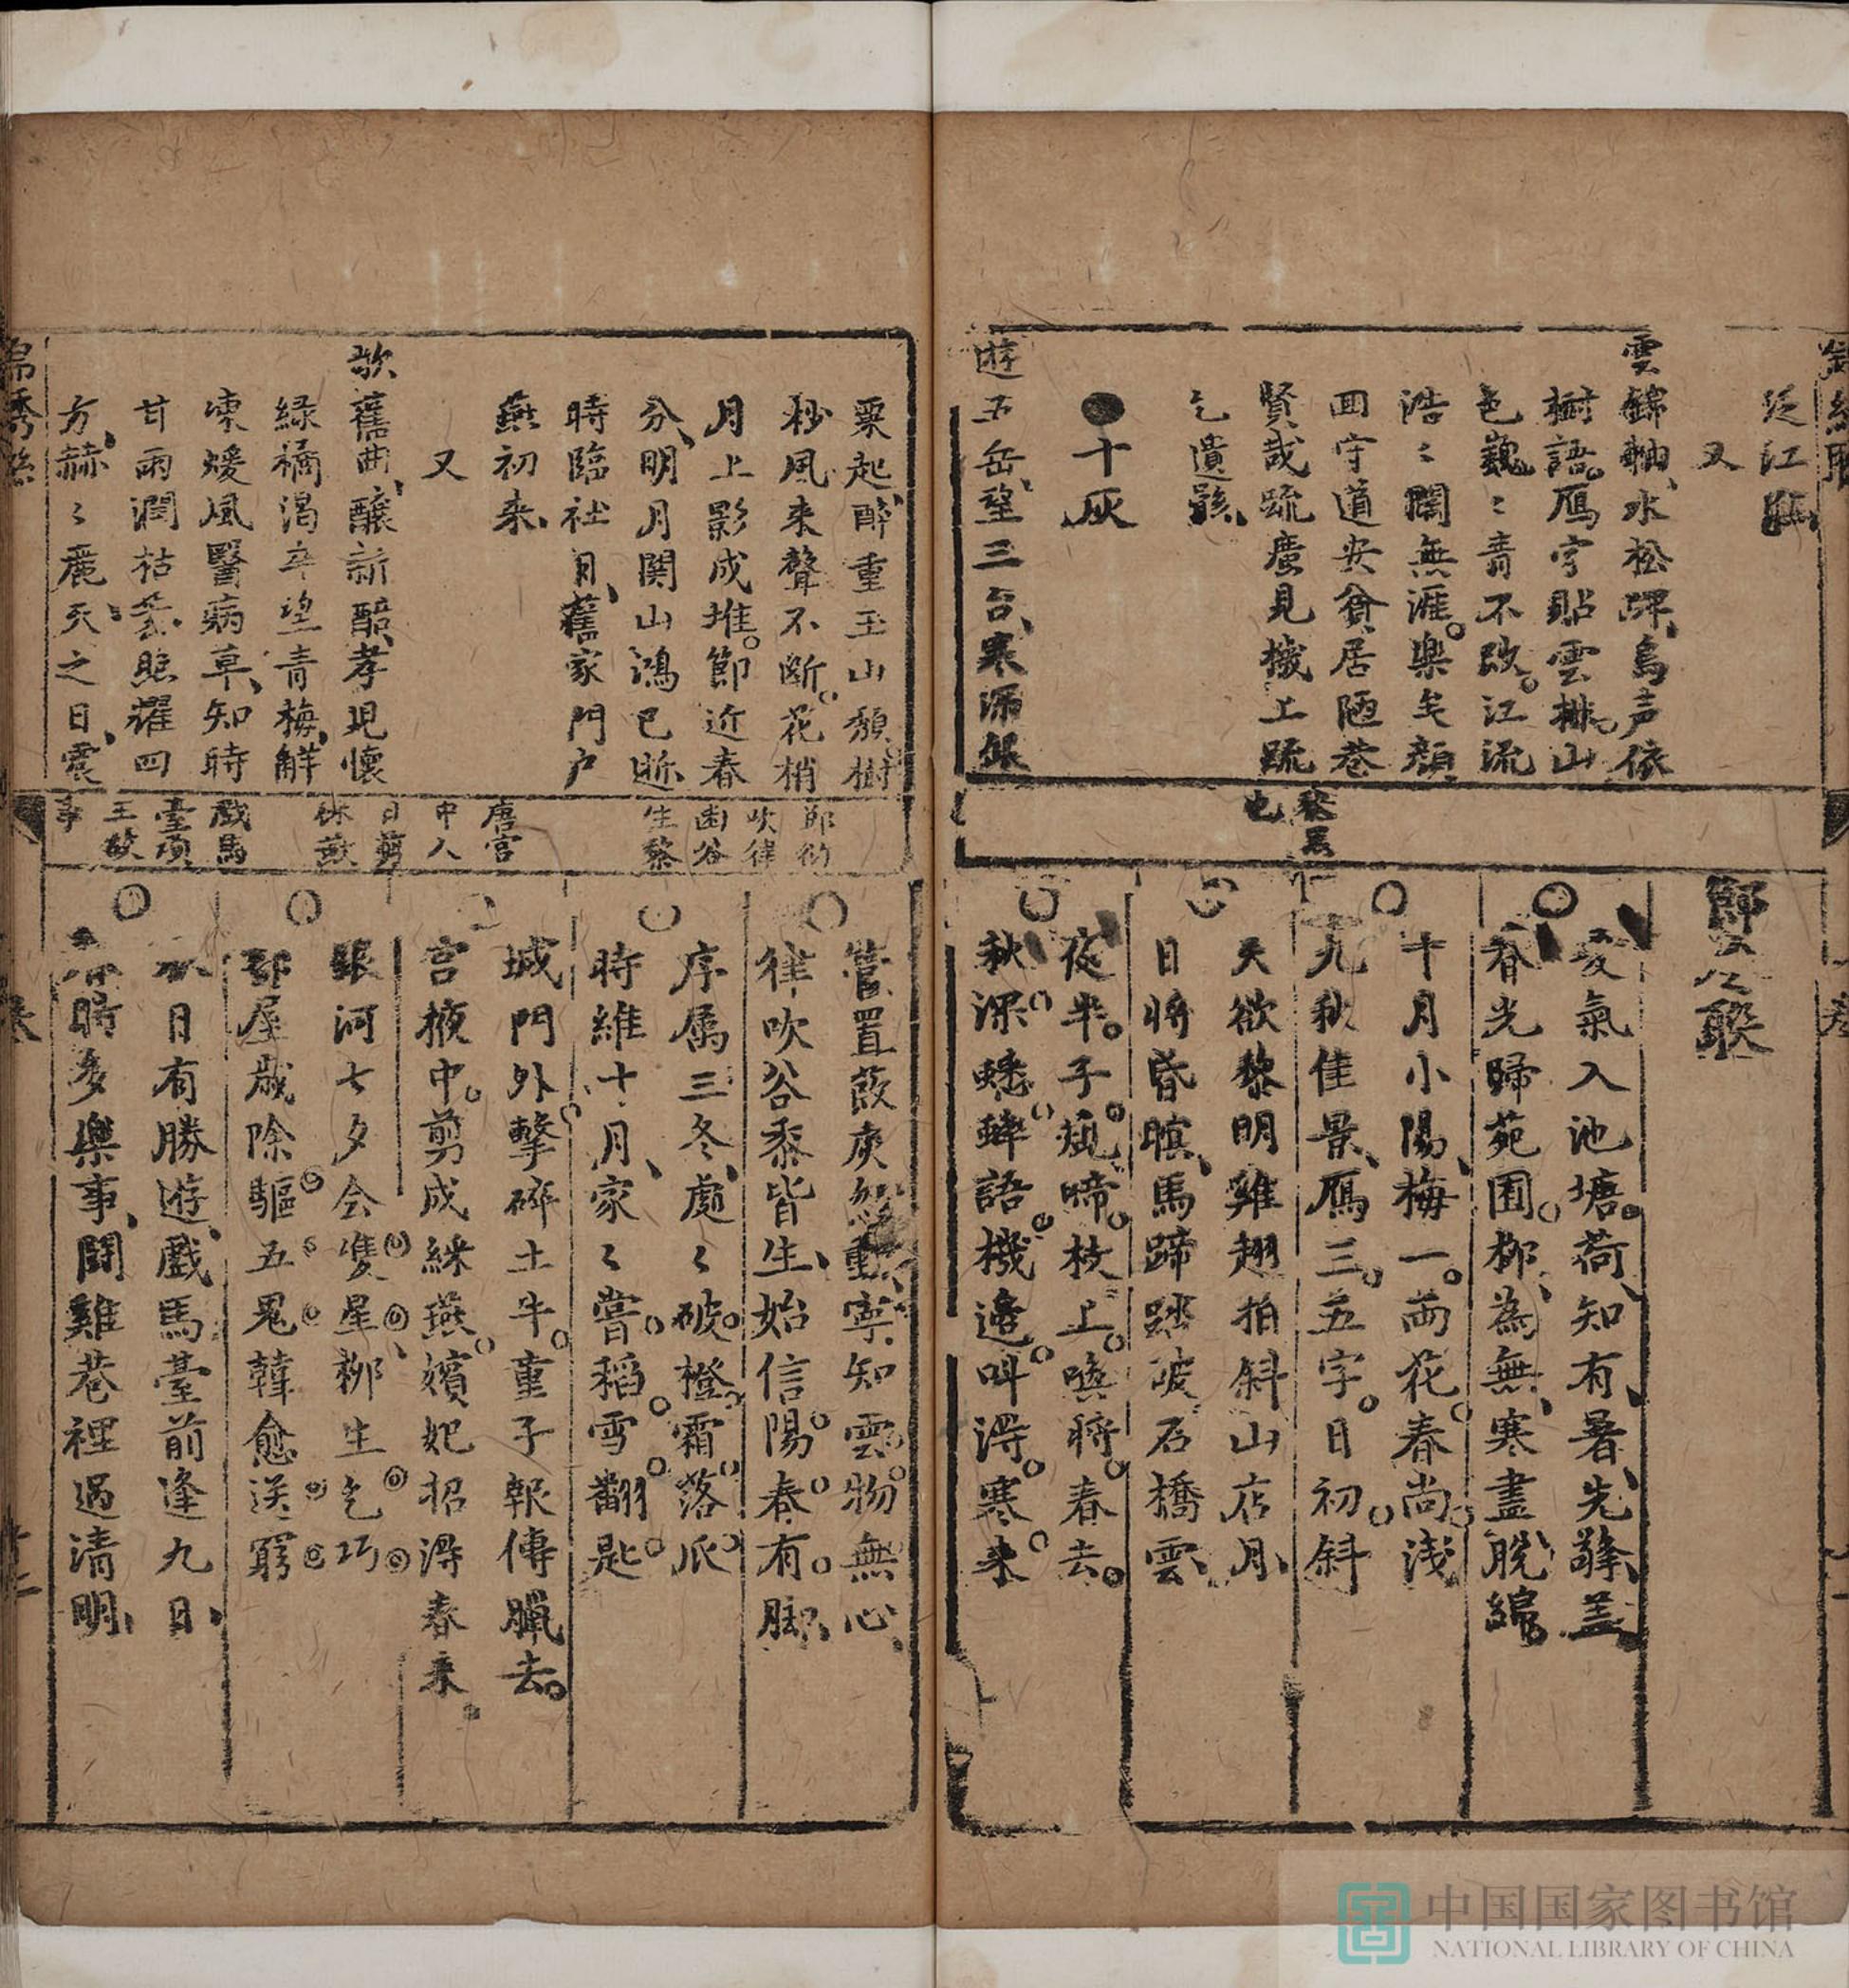 泛江
又
雲錦軸、水松
樹語。鴈字貼雲排。山
色巍〻青不改。江流
浩〻闊無涯。樂矣顔
回守道安貧居陋巷
賢哉疏廣見機上疏
乞遺骸、
●十灰
遊五岳、望三台、寒
黎黑
也
節令聯
氣入池塘。荷知有、暑、先擎盖
春光歸苑囿。柳為無、寒盡脫綿
十月小陽、梅一。両花。春尚淺
九秋佳景、鴈三。五字。日初斜
天欲黎明雞翅拍斜山店月、
日將昏暝、馬蹄踏破石橋雲、
夜半。子規啼。枝上。喚將。春去。
秋深蟋蟀語機邊。呌得。寒来
粟起、酔重玉山頽。樹
杪風来聲不断。花梢
月上影成堆。節近春
分、明月関山鴻已
時臨社日、舊家門户
燕初来、
又
歌舊曲、釀新醅、孝児懷
緑橘渴卒望青梅、解
凍煖風醫病草、知時
甘雨潤枯荄照耀四
方、赫〻麗天之日、震
鄒衍
吹律
幽谷
生黎
唐宮
中人
日剪
綵燕
戲馬
臺項
王故
事
管置葭灰動、寧知雲物無心、
律吹谷黍皆生、始信陽春有脚、
序属三冬、處〻破橙霜落爪
時維十月、家〻嘗稻雪翻匙
城門外擊碎土牛。童子報傳臘去。
宮掖中。剪成綵燕。嬪妃招得春来
銀河七夕会雙星、柳生乞巧
部屋歳除驅五鬼韓愈送窮
日有勝遊、戲馬臺前逢九日、
時多樂事、閗雞巷裡過清明、
中国国家图书馆
NATIONAL LIBRARY OF CHINA